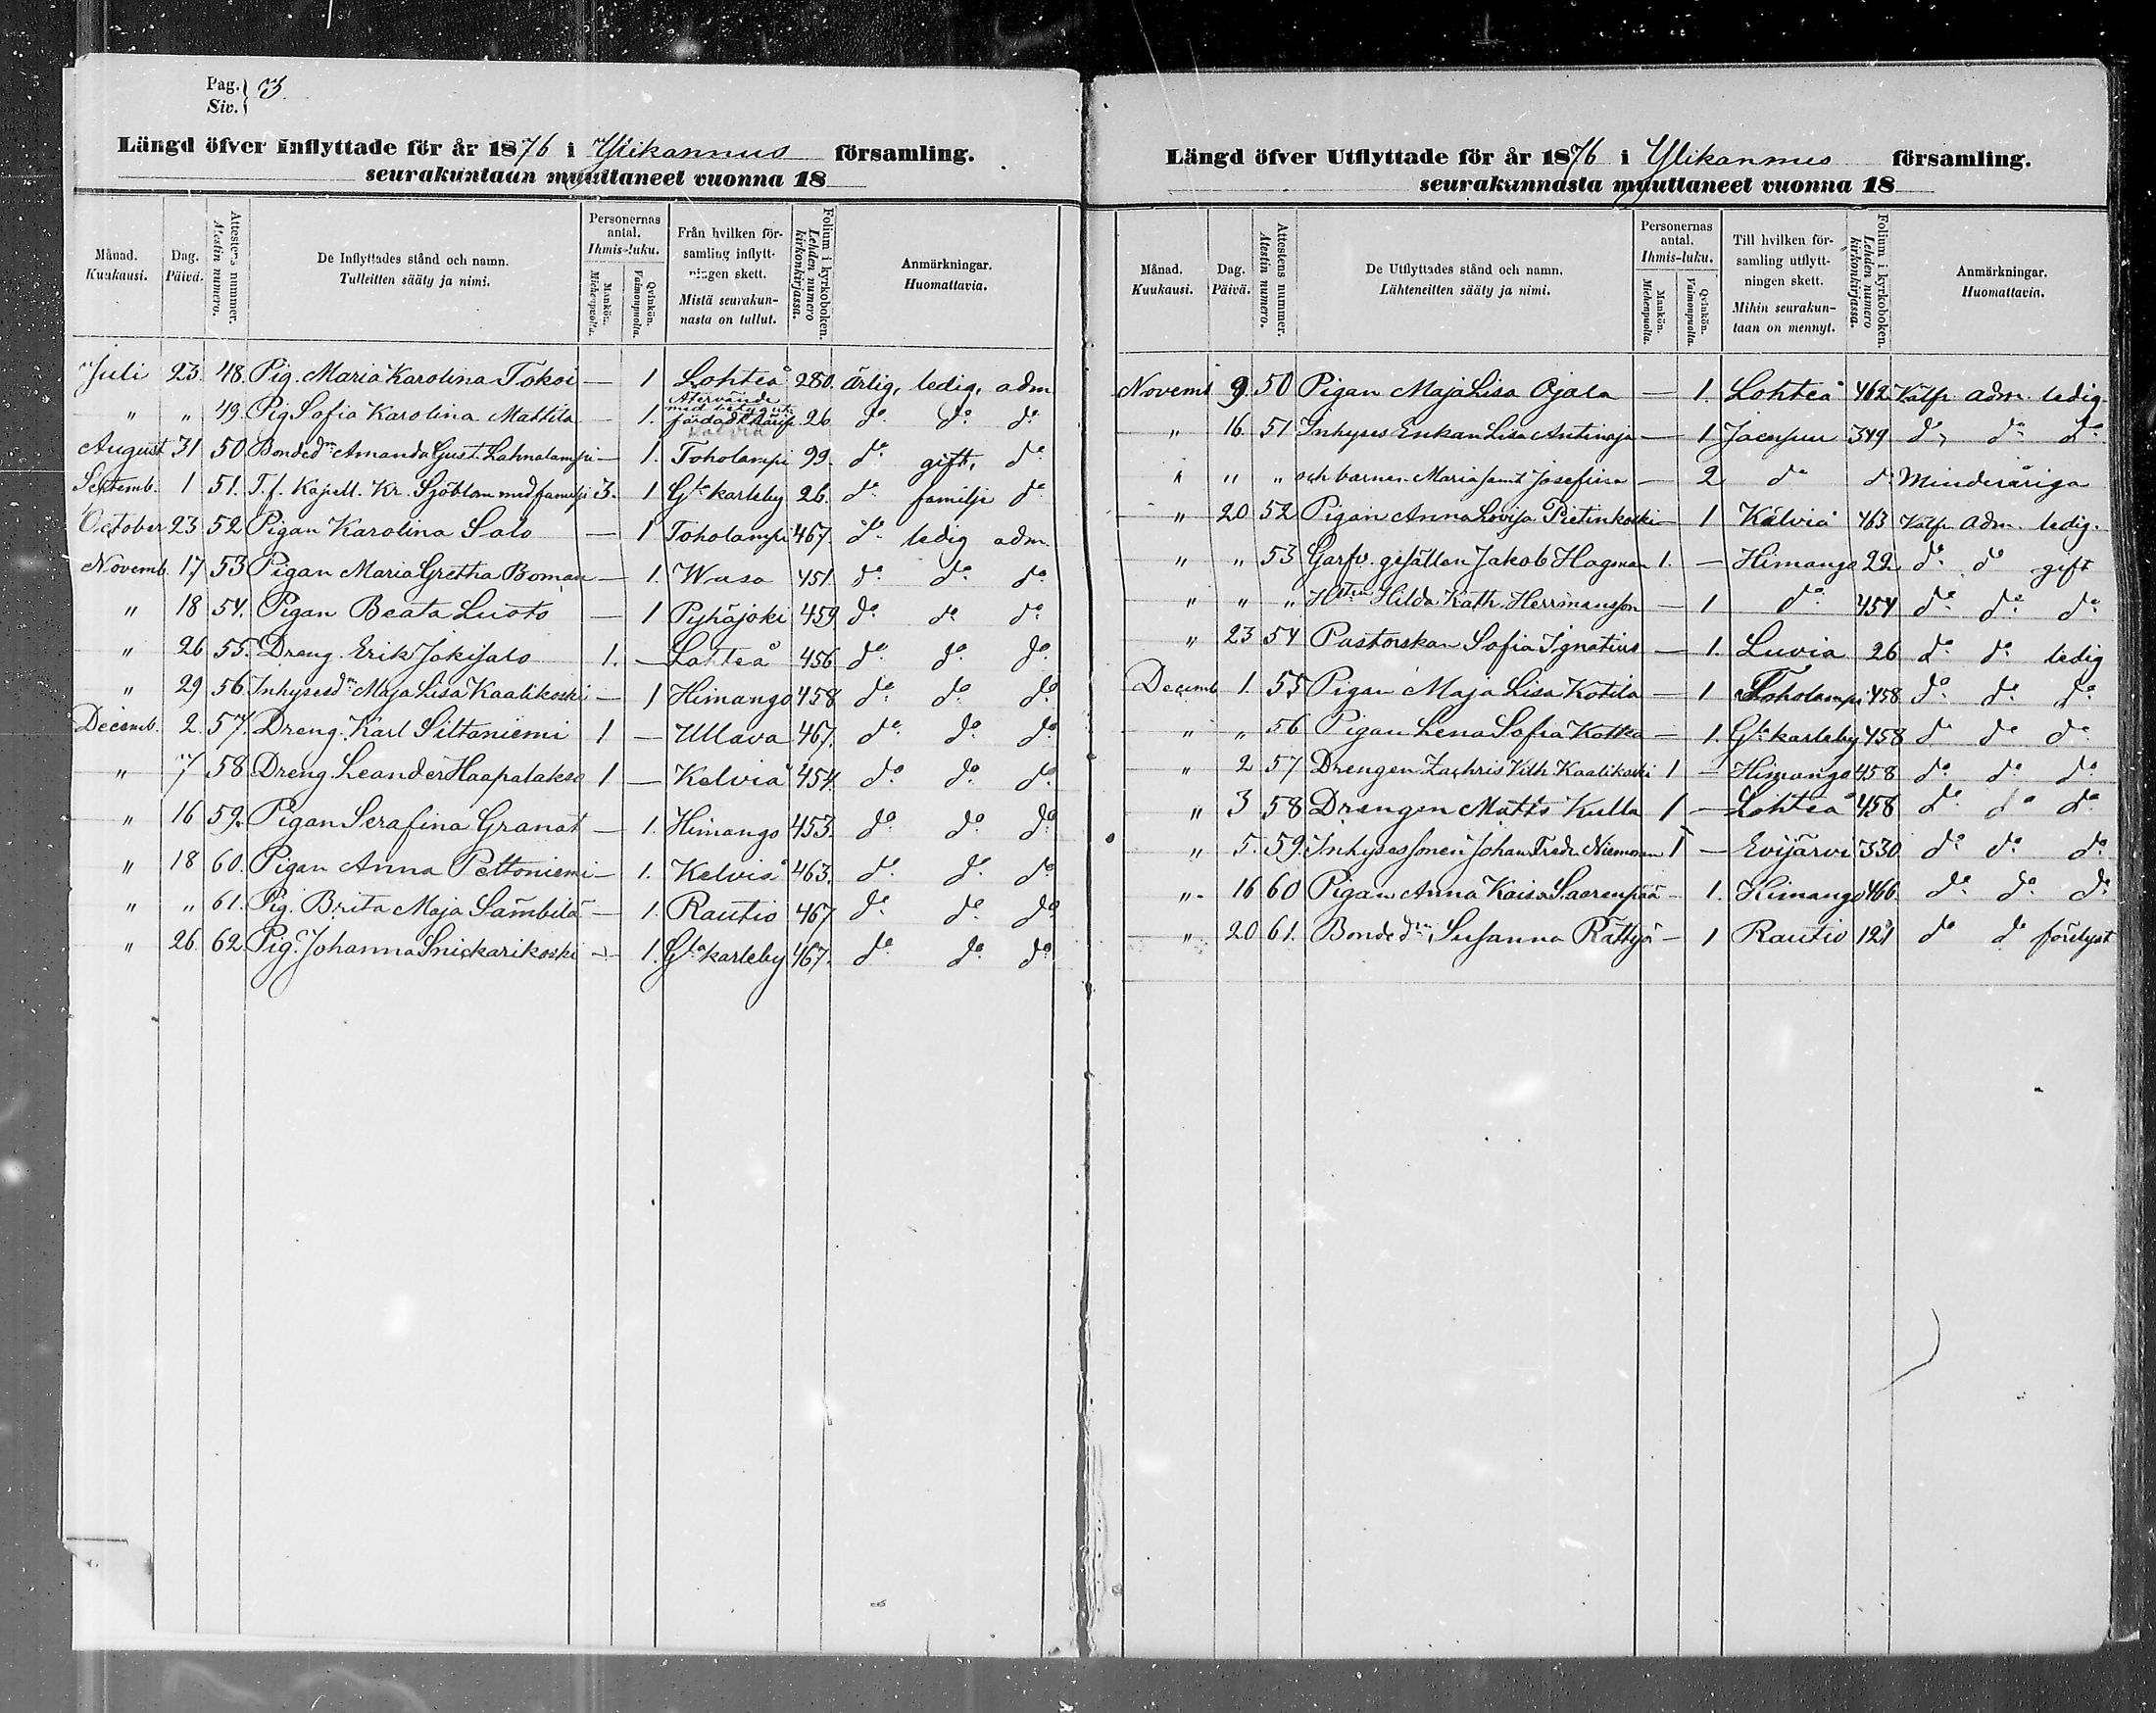 Pag. 3.
Siv.
Längd öfver Inflyttade för år 1876 i Ylikannus församling.
seurakuntaan muuttaneet vuonna 18
Månad. Kuukausi.
Dag. Päivä.
Attestens nummer. Atestin numero.
De Inflyttades stånd och namn. Tulleitten sääty ja nimi.
Personernas antal. Ihmis-luku.
Mankön. Miehenpuolta.
Qvinkön. Vaimonpuolta.
Från hvilken församling inflyttningen skett. Mistä seurakunnasta on tullut.
Folium i kyrkoboken. Lehden numero kirkonkirjassa.
Anmärkningar. Huomattavia.
Juli 23. 48. Pig. Maria Karolina Tokoi — 1 Lohteå 280. ärlig, ledig, adm
" " 49. Pig Sofia Karolina Mattila — 1. Återvände med betyget 26 do do do
August 31 50 Bondedn Amanda Gust. Lahnalampi — 1. Toholampi 99. do gift, do
Septemb. 1 51. T.f. Kapell. Kr. Sjöblom med familj 3. 1 Gla karleby 26. do familje do
October 23 52 Pigan Karolina Salo — 1 Toholampi 467. do ledig adm.
Novemb. 17 53 Pigan Maria Gretha Boman — 1. Wasa 451. do do do
" 18 54. Pigan Beata Luoto — 1 Pyhäjoki 459 do do do
" 26 55. Dreng. Erik Jokisalo 1. — Lohteå 456 do do do
" 29 56 Inhysesdn Maja Lisa Kaalikoski — 1 Himango 458 do do do
Decemb. 2. 57. Dreng. Karl Siltaniemi 1 — Ullava 467. do do do
" 7 58 Dreng Leander Haapalakso 1 — Kelviå 454. do do do
" 16 59. Pigan Serafina Granat — 1. Himango 453. do do do
" 18 60. Pigan Anna Peltoniemi — 1. Kelviå 463. do do do
" " 61. Pig. Brita Maja Sämbilä — 1. Rautio 467 do do do
" 26. 62. Pig. Johanna Snickarikoski — 1. Gla karleby 467. do do do
Längd öfver Utflyttade för år 1876 i Ylikannus församling.
seurakunnasta muuttaneet vuonna 18
Månad. Kuukausi.
Dag. Päivä.
Attestens nummer. Atestin numero.
De Utflyttades stånd och namn. Lähteneitten sääty ja nimi.
Personernas antal. Ihmis-luku.
Mankön. Miehenpuolta.
Qvinkön. Vaimonpuolta.
Till hvilken församling utflyttningen skett. Mihin seurakuntaan on mennyt.
Folium i kyrkoboken. Lehden numero kirkonkirjassa.
Anmärkningar. Huomattavia.
Novemb 9. 50 Pigan Maja Lisa Ojala — 1. Lohteå 462 Välfr. adm. ledig.
" 16. 51 Inhyses Enkan Lisa Antinoja — 1 349 do do do
" " " och barnen Maria samt Josefina — 2 do do Minderåriga
" 20 52 Pigan Anna Lovisa Pietinkoski — 1 Kelviå 463 Välfr. adm. ledig.
" " 53 Garfv. gesällen Jakob Hagman 1. — Himango 22 do do gift
" " " Hstru Hilda Kath. Hermansson — 1 do 454 do do do
" 23 54 Pastorskan Sofia Ignatius — 1. Luvia 26 do do ledig
Decemb 1. 55 Pigan Maja Lisa Kotila — 1 Toholampi 458 do do do
" " 56 Pigan Lena Sofia Kotka — 1. Gla karleby 458 do do do
" 2 57 Drengen Zachris Vilh Kaalikoski 1 — Himango 458 do do do
" 3 58 Drengen Matts Kulla 1 — Lohteå 458 do do do
" 5. 59. Inhysessonen Johan Fredr. Niemonen 1 — Evijärvi 330 do do do
" 16 60 Pigan Anna Kaisa Saarenpää — 1. Himango 466. do do do
" 20 61. Bondedn Susanna Rättyä — 1 Rautio 121 do do förlyst